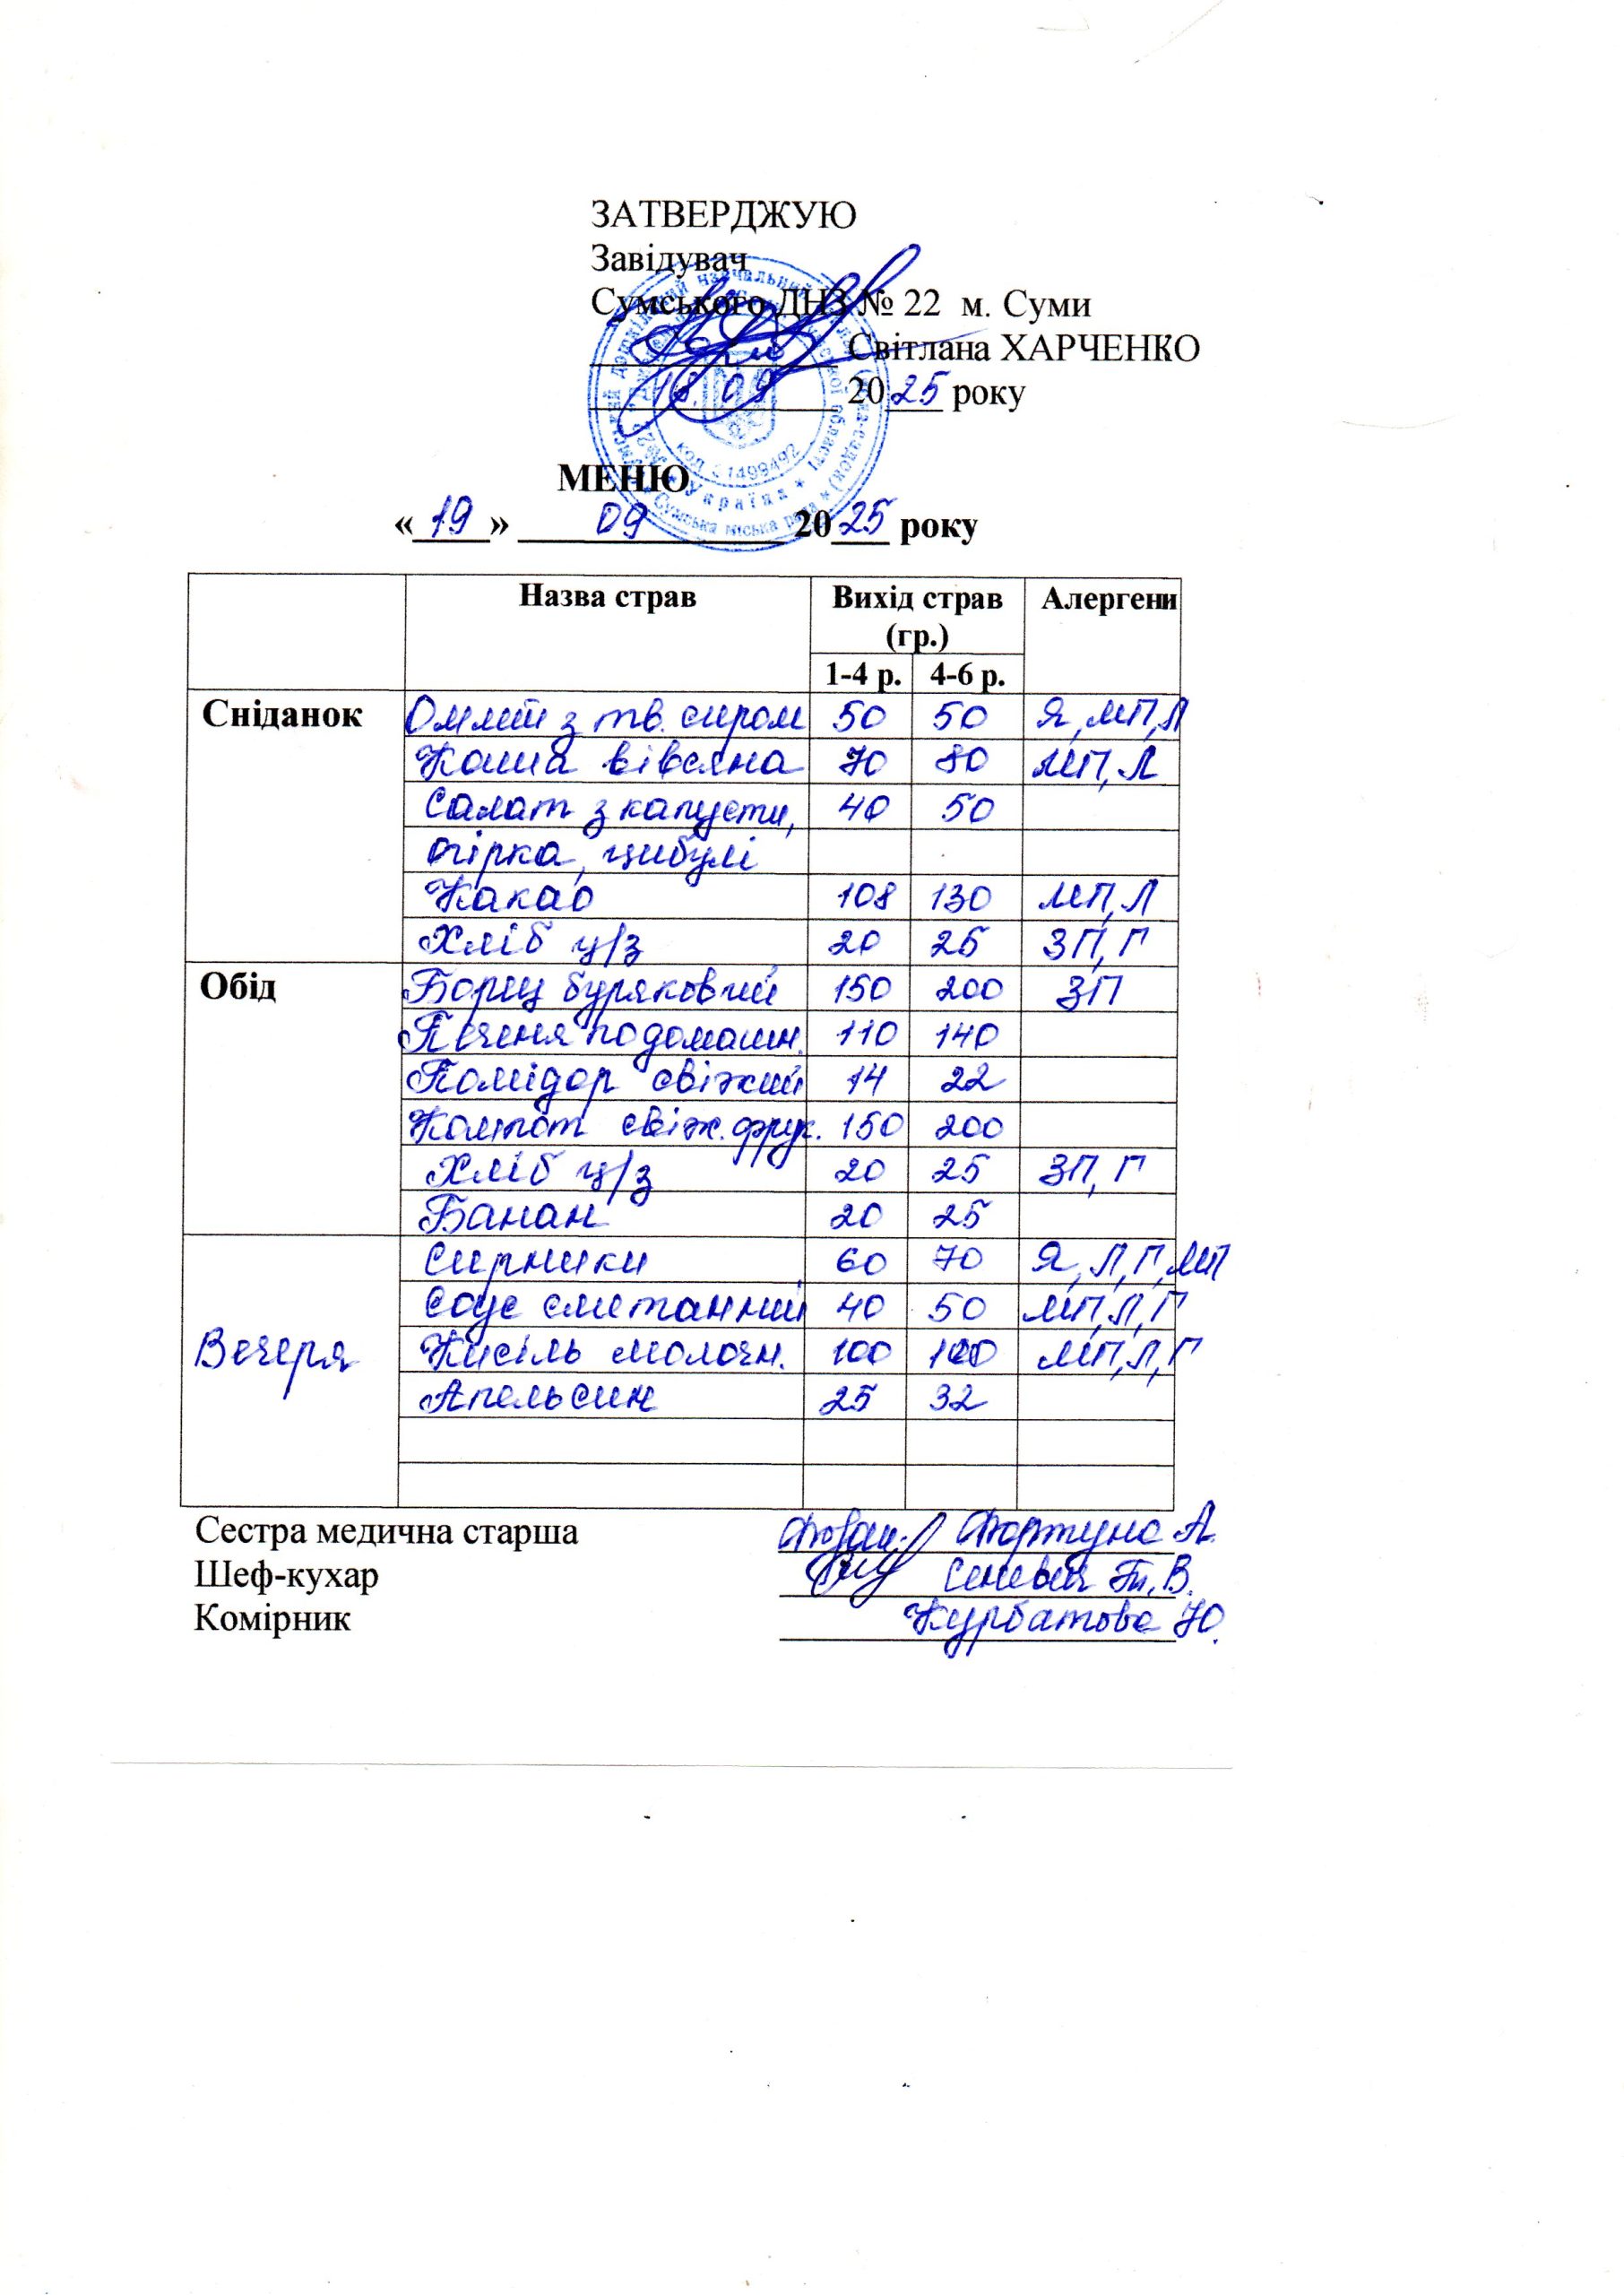 ЗАТВЕРДЖУЮ
Завідувач
Сумського ДНЗ № 22 м. Суми
Світлана ХАРЧЕНКО
18.09 2025 року
МЕНЮ
« 19 » 09 2025 року
Назва страв Вихід страв (гр.) Алергени
1-4 р. 4-6 р.
Сніданок Омлет з тв. сиром 50 50 Я, МП, Л
Каша вівсяна 70 80 МП, Л
Салат з капусти, 40 50
огірка, цибулі
Какао 108 130 МП, Л
Хліб ц/з 20 25 ЗП, Г
Обід Борщ буряковий 150 200 ЗП
Печеня по домашн. 110 140
Помідор свіжий 14 22
Компот свіж. фрук. 150 200
Хліб ц/з 20 25 ЗП, Г
Банан 20 25
Сирники 60 70 Я, Л, Г, МП
Соус сметанний 40 50 МП, Л, Г
Вечеря Кисіль молочн. 100 МП, Л, Г
Апельсин 25 32
Сестра медична старша Фортуна А.
Шеф-кухар Т. В.
Комірник Курбатова Ю.